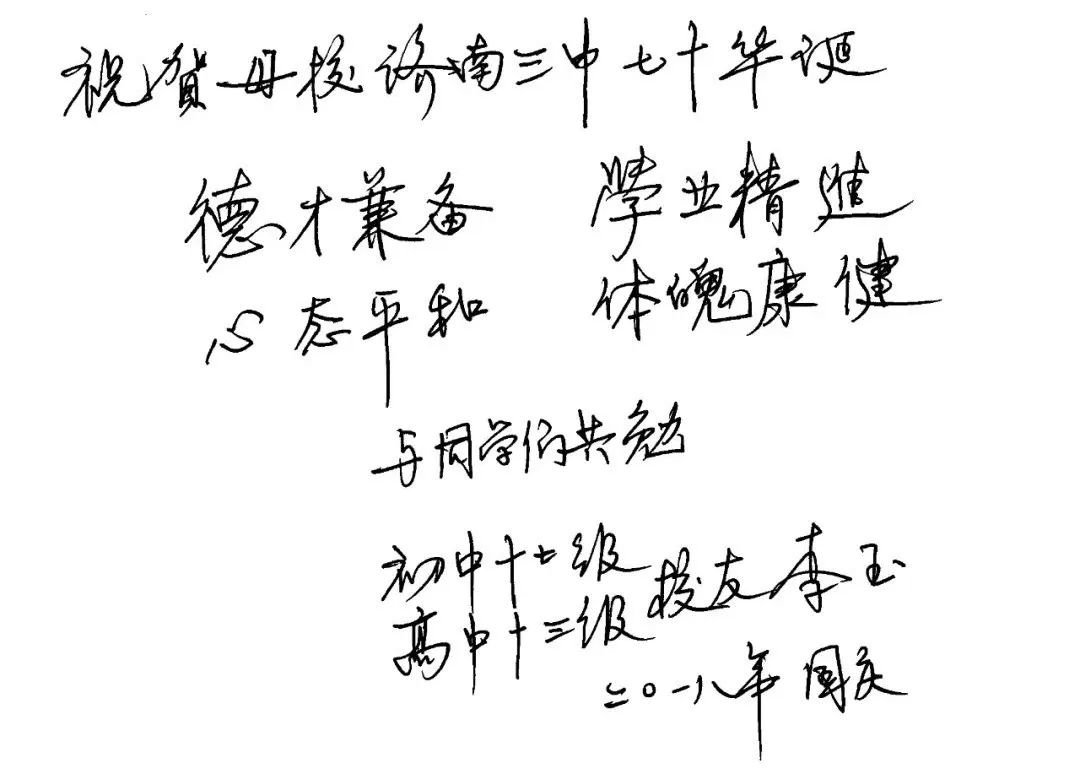 祝賀母校济南三中七十华诞
德才兼备 學业精進
心态平和 体魄康健
与同学们共勉
初中十七级
高中十三级 校友李玉
二〇一八年国庆